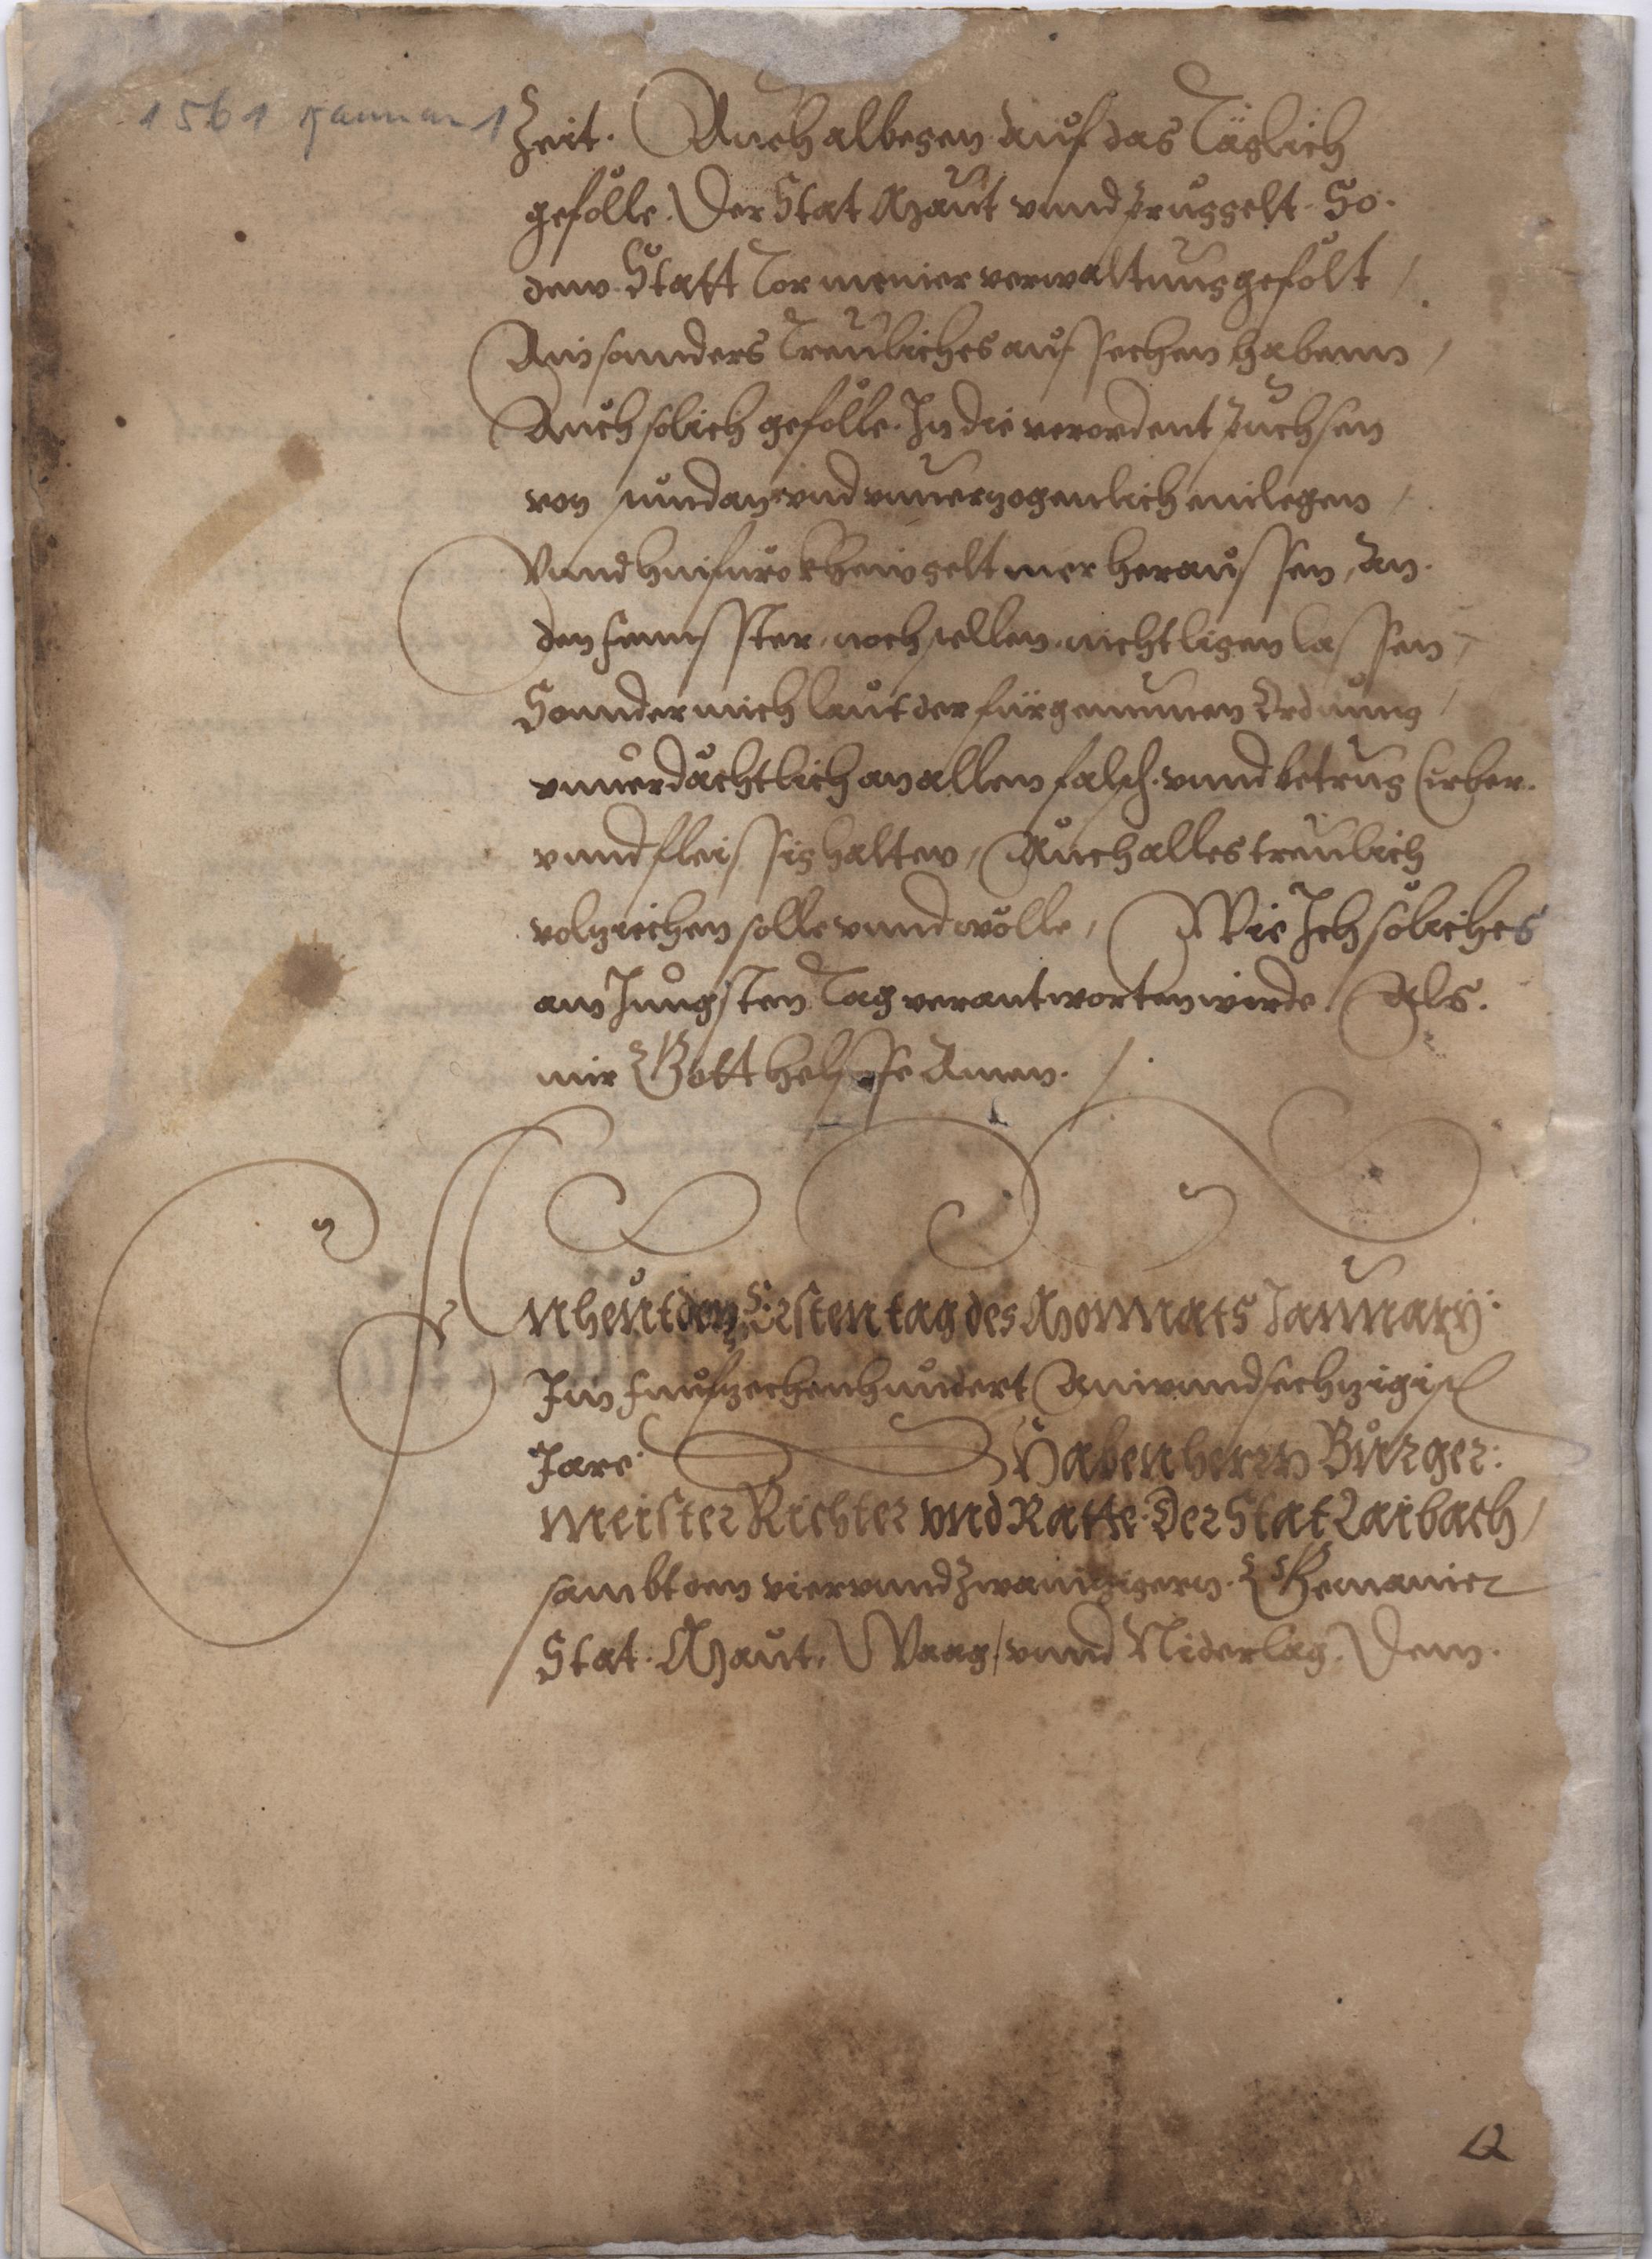 1561 Januar 1
Zeit. Auch albegen auf das Täglich
gefölle. Der Stat Maut vnnd Pruggelt. So.
dem. Statt Tor meiner verwaltung gefölt /
Ain sonnders Treuliches auf sechen habenn /
Auch solich gefölle. In die verordent Puchsen
von stund an. vnd vnuerzogenlich einlegen /
Vnnd hinfuro khein gelt mer heraussen, an.
den Fennsster, noch zellen. nicht ligen lassen /
Sonnder mich laut der fürgenumen Ordnung /
vnuerdächtlich an allen falsch. vnnd betrug Erber.
vnnd fleissig halten, Auch alles treulich
volziechen solle vnnd wölle, Wie Ich söliches
am Jungsten Tag verantworten wirde. Als.
mir Gott helffe Amen.
An heut den Ersten tag des Monnats Januarÿ.
Im Funfzechenhundert Ainvnndsechzigisten
Jare. Haben herrn Burger:
meister Richter vnd Ratte. Der Stat Laibach /
sambt den viervnndzwainzigern. Gemainer
Stat. Maut. Waag / vnnd Niderlag. Dem.
2